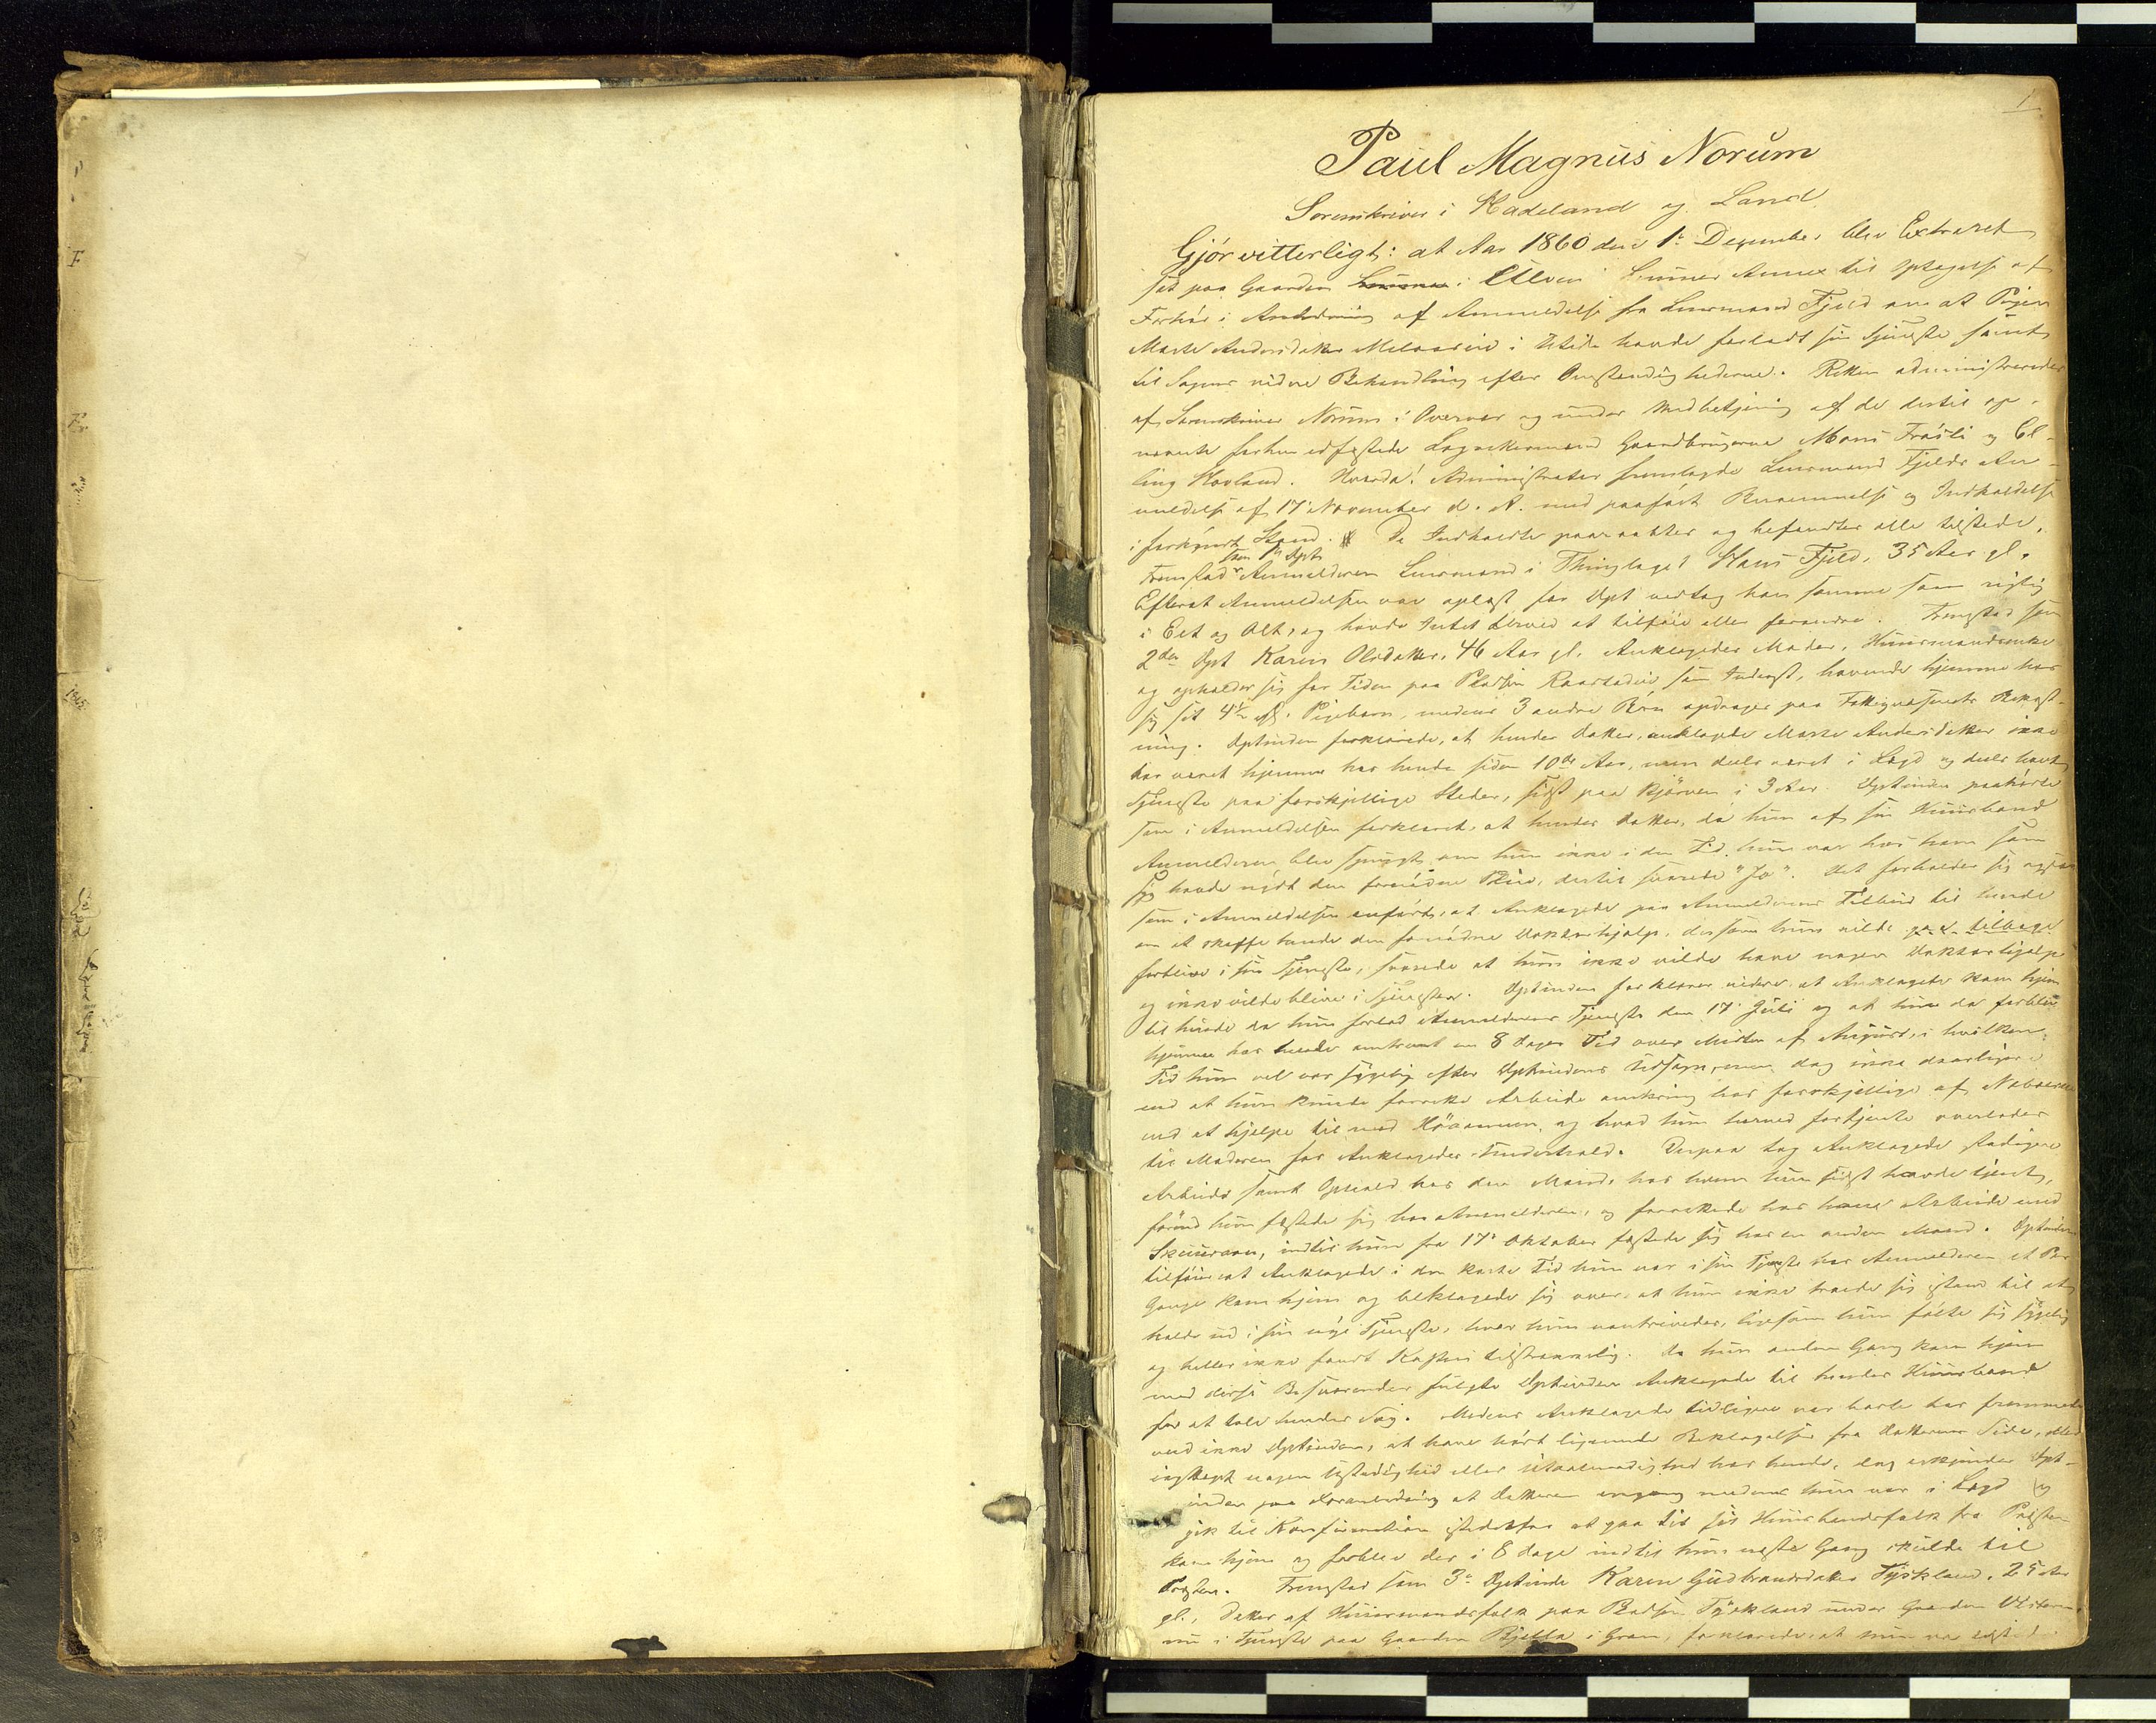 1
Paul Magnus Norum
Sorenskriver i Hadeland og Land
Gjör vitterligt: at Aar 1860 den 1ste December blev Extraret
sat paa Gaarden i Lunner Annex til Optagelse af
Forhör i Anledning af Anmeldelse fra Lensmand Fjeld om at Pigen
Marte Andersdatter i Utide havde forladt sin Tjeneste samt
til Sagens videre Behandling efter Omstændighederne. Retten administreredes
af Sorenskriver Norum i Overvær og under Medbetjening af de dertil op-
nævnte forhen edfæstede Lagrettesmænd Gaardbrugerne Mons Frösli og El-
ling Hovland. Hvorda! Administrator fremlagde Lensmand Fjelds An-
meldelse af 17 November d. A. med paaført Berammelse og Indkaldelse
i forkyndt Stand. De Indkaldte paaraabtes og befandtes alle tilstede.
som 1ste Dpt
Fremstod Anmelderen Lensmand i Thinglaget Hans Fjeld, 35 Aar gl.
Efterat Anmeldelsen var oplæst for Dpt vedtog han samme som rigtig
i Eet og Alt, og havde Intet derved at tilföie eller forandre. Fremstod som
2den Dpt Karen Olsdatter, 46 Aar gl. Anklagedes Moder, Huusmandsenke
og opholder sig for Tiden paa Pladsen som Inderst, havende hjemme hos
sig sit 4½ Pigebarn, medens 3 andre Börn opdrages paa Fattigvæsenets Bekost-
ning. Dptinden forklarede, at hendes Datter, anklagede Marte Andersdatter ikke
har været hjemme hos hende siden 10de Aar, men deels været i Lægd og deels havt
Tjeneste paa forskjellige Steder, sidst paa Kjørven i 3 Aar. Dptinden paahörte
som i Anmeldelsen forklaret, at hendes Datter, da hun af sin Huusbond
Anmelderen blev spurgt om hun ikke i den Tid hun var hos ham som
syg havde nydt den fornödne Pleie, dertil svarede "Jo". Det forholder sig ogsaa
som i Anmeldelsen anført, at Anklagede paa Anmelderens Tilbud til hende
om at skaffe hende den fornödne Doktorhjælp, dersom hun vilde gaa tilbage
forblive i sin Tjeneste, svarede at hun ikke vilde have nogen Doktorhjælp
og ikke vilde blive i Tjenesten. Dptinden forklarer videre, at Anklagede kom hjem
til hende da hun forlod Anmelderens Tjeneste den 17 Juli og at hun da forblev
hjemme hos hende omtrent en 8 Dages Tid over Midten af August, i hvilken
Tid hun vel var sygelig efter Dptindens Udsagn, men dog ikke daarligere
end at hun kunde forrette Arbeide omkring hos forskjellige af Naboerne
med at hjelpe til med Höaannen, og hvad hun herved fortjente overlodes
til Moderen for Anklagedes Underhold. Derpaa tog Anklagede stadigere
Arbeide samt Ophold hos den Mand, hos hvem hun sidst havde tjent,
förend hun fæstede sig hos Anmelderen, og forrettede hos ham Arbeide med
Skuraan, indtil hun fra 17 Oktober fæstede sig hos en anden Mand. Dptinden
tilföier at Anklagede i den korte Tid hun var i sin Tjeneste hos Anmelderen et Par
Gange kom hjem og beklagede sig over, at hun ikke troede sig istand til at
holde ud i sin nye Tjeneste, hvor hun vantrivedes, ligesom hun fölte sig sygelig
og heller ikke fandt Kosten tilstrækkelig. Da hun anden Gang kom hjem
med disse Besværinger fulgte Dptinden Anklagede til hendes Huusbond
for at tale hendes Sag. Medens Anklagede tidligere var borte hos fremmede
ved ikke Dptinden, at have hört lignende Beklagelser fra Datterens Side, eller
iagttaget nogen Ustadighed eller Utaalmodighed hos hende, dog erkjender Dpt-
inden paa Foranledning at Datteren engang medens hun var i Lægd og
gik til Konfirmation istedetfor at gaa til sit Huusbondsfolk fra Præsten
kom hjem og forblev der i 8 Dage indtil hun næste Gang skulde til
Præsten. Fremstod som 3die Dptinde Karen Gudbrandsdatter Tyskland, 25 Aar
gl., Datter af Huusmandsfolk paa Pladsen Tyskland under Gaarden
nu i Tjeneste paa Gaarden Bjella i Gran, forklarede, at hun var